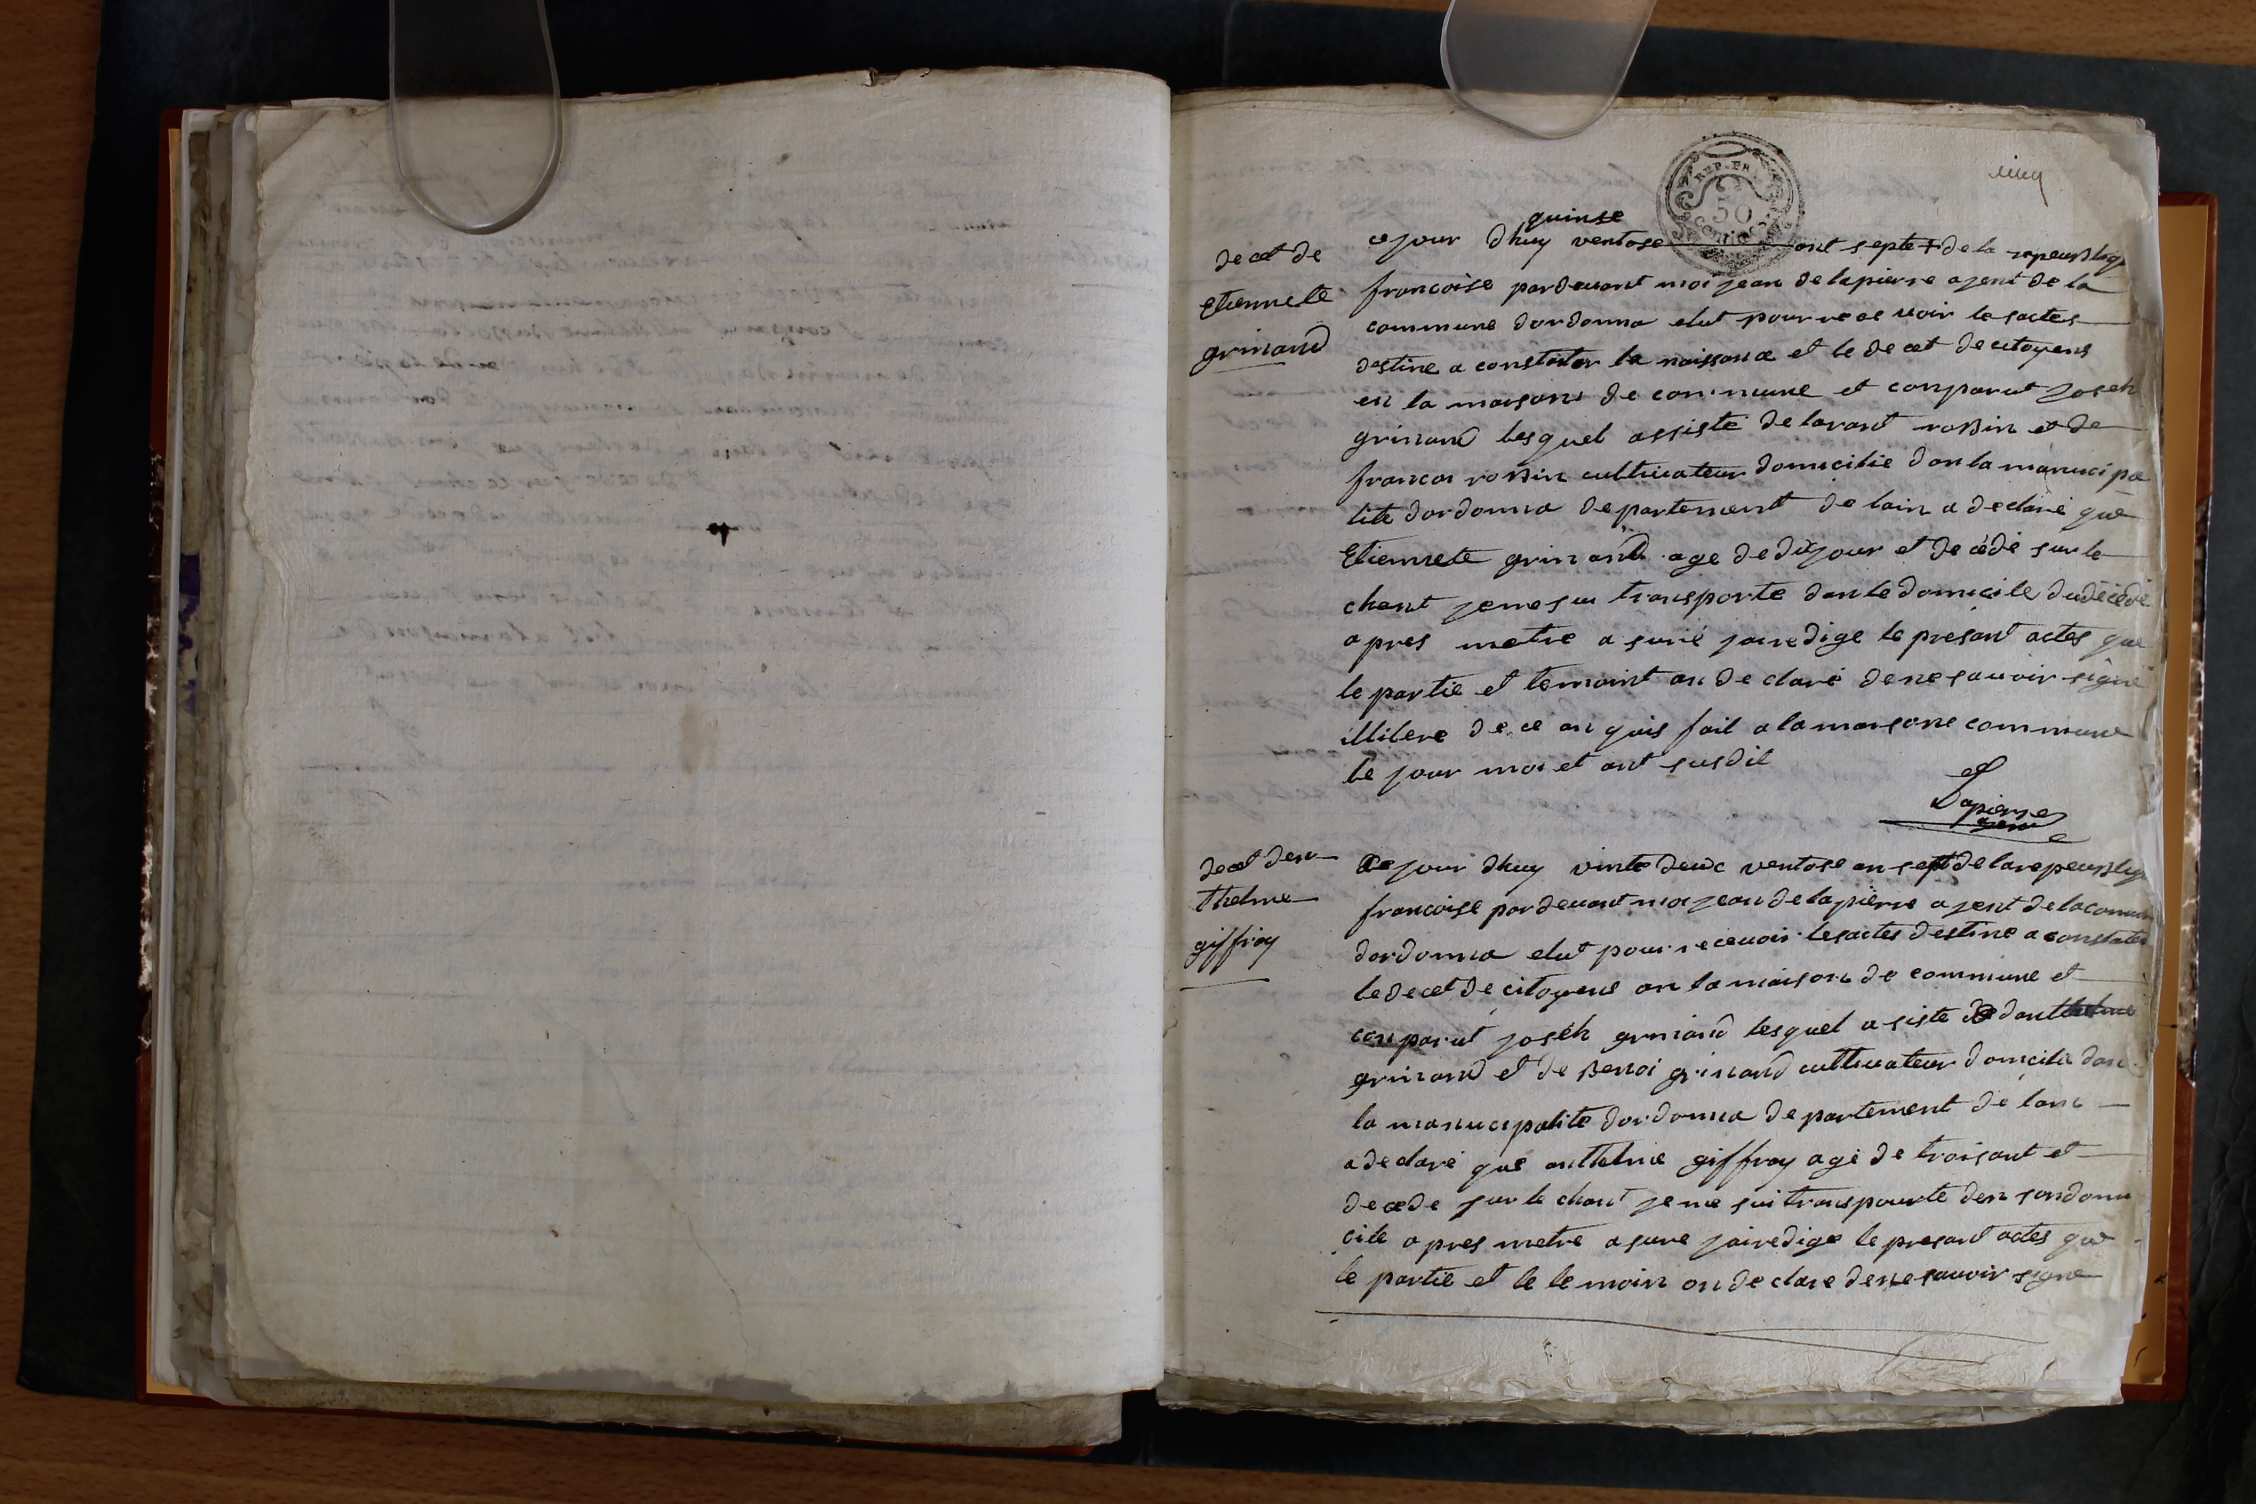 cinq
REP. FRA.
50
CENTIM.
quinse
decet de
Etiennete
grinand
ce jour dhuy ventose ant septe de la repeusliqe
francoise pardevant moi jean de lapierre agent de la
commune dordonna elut pour rece voir les actes
destine a constater la naissance et le decet de citoyens
en la maisons de commune et conparut Joseh
grinand lesquel assisté de lorant rossin et de
francoi rossin cultivateur domicilié dan la manucipa
lité dordonna departement de lain a declaré que
Etiennete grinand age de dix jour et decédé sur le
chant je me sui transporte dan le domicile du décédé
apres metre a suré jai redige le presant actes que
le partie et temoint on de claré de ne savoir signé
illitere de ce anquis fait a la maisone commune
le jour moi et ant susdit
Lapierre
agent
decet den
thelme
giffray
Ce jour dhuy vinte deux ventose an sept de la repeuslige
francoise pardevant moi jean de lapierre agent de la comune
dordonna elut pour recevoir les actes destine a constater
le decet de citoyens an la maison de commune et
conparut joséh grinand lesquel a siste de danthelme
grinand et de Benoi grinand cultivateur domicilié dan
la manucipalité dordonna departement de lain
a declaré que anthelme giffray agé de troisant et
decede sur le chant je me sui transpourte den son domi
cile apres metre a sure jai redige le presant actes que
le partie et le temoin on de clare de ne savoir signe